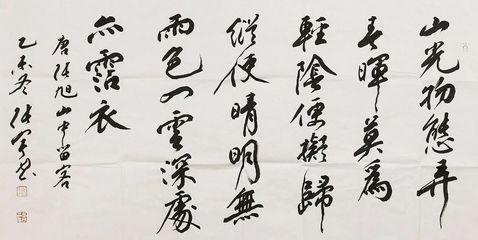 山光物態弄
春暉莫為
輕陰便擬歸
縱使晴明無
雨色入雲深處
亦霑衣
唐張旭山中留客
乙未冬張